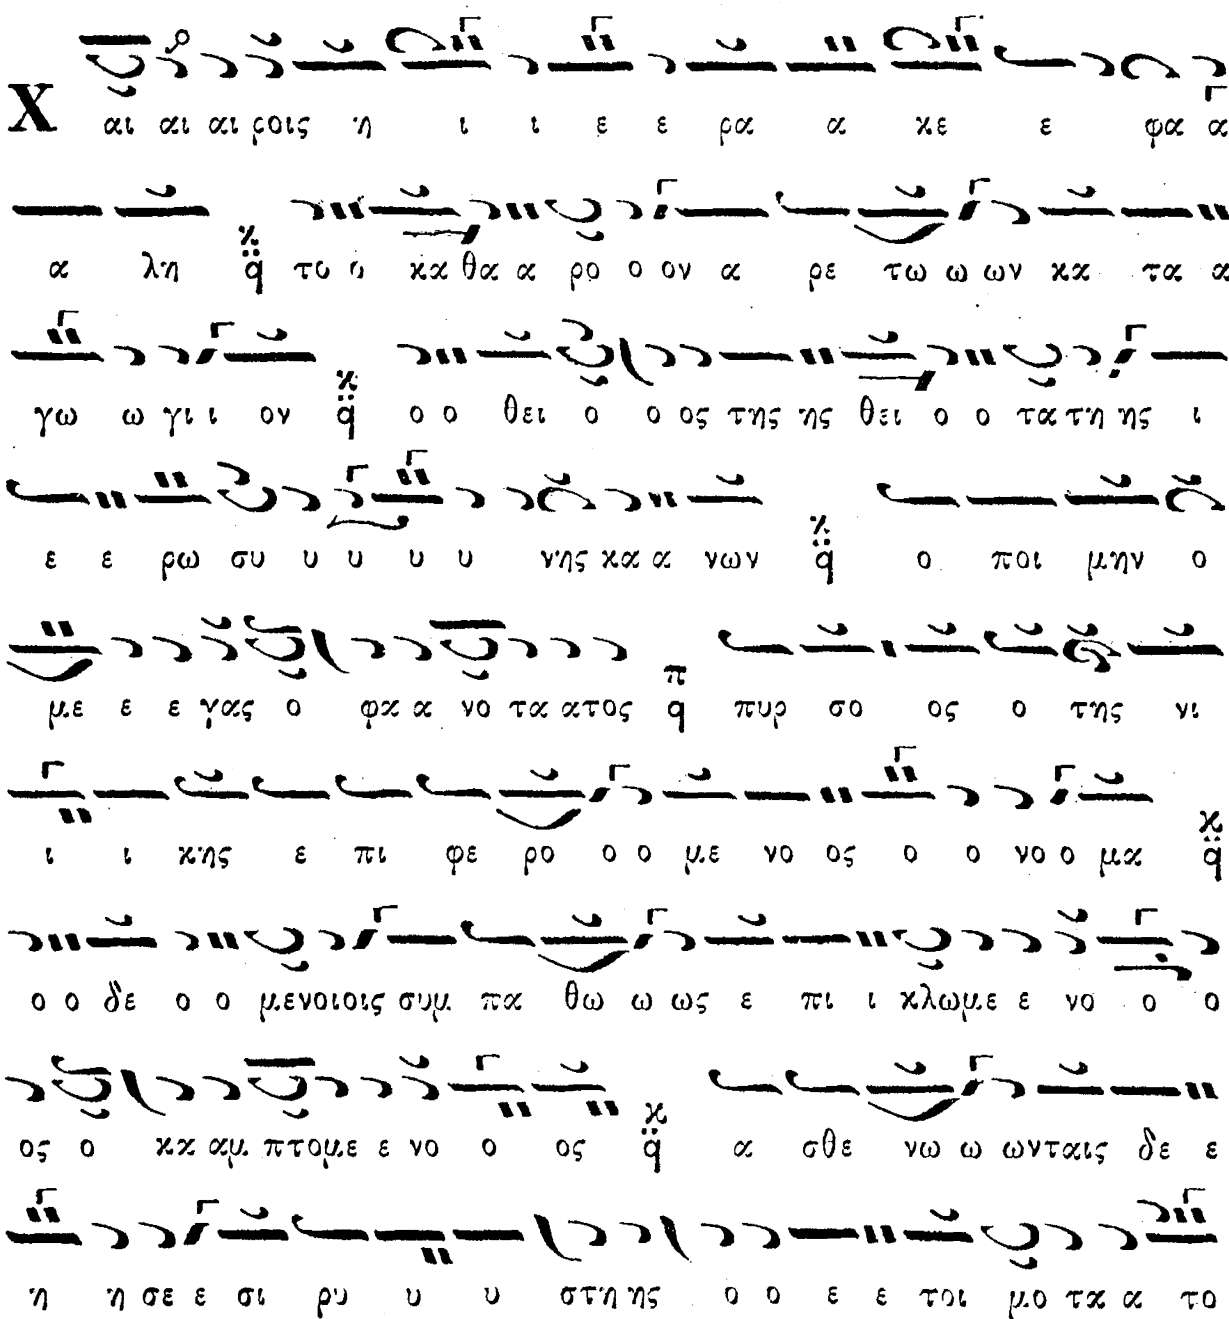 Χ αι αι αι ροις η ι ι ε ε ρα α κε ε φα α
α λη κ̈ q το ο κα θα α ρο ο ον α ρε τω ω ων κα τα α
γω ω γι ι ον κ̈ q ο ο θει ο ο ος της ης θει ο ο τα τη ης ι
ε ε ρω συ υ υ υ υ νης κα α νων κ̈ q ο ποι μην ο
με ε ε γας ο φα α νο τα ατος π q πυρ σο ος ο της νι
ι ι κης ε πι φε ρο ο ο με νο ος ο ο νο ο μα κ̈ q
ο ο δε ο ο μενοιοις συμ πα θω ω ως ε πι ι κλωμε ε νο ο ο
ος ο κα αμ πτομε ε νο ο ος κ̈ q α σθε νω ω ωνταις δε ε
η η σε ε σι ρυ υ υ στη ης ο ο ε ε τοι μο τα α το